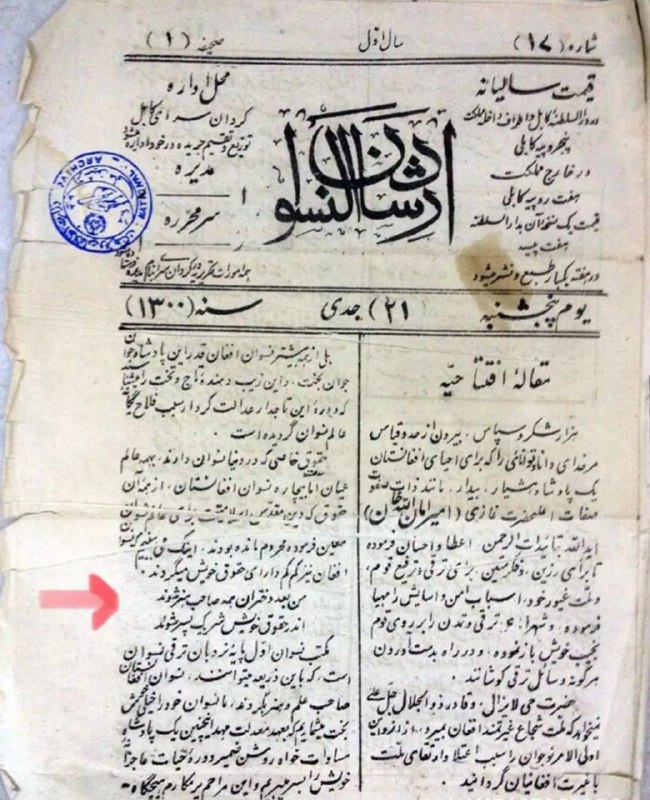 شماره (۱۷)
سال اول
صحیفه (۱)
قیمت سالیانه
در دارالسلطنهٔ کابل و اطراف داخله مملکت
پنج روپیه کابلی
در خارج مملکت
هفت روپیه کابلی
قیمت یک نسخهٔ آن بدارالسلطنه
هفت پیسه
در هفته یکبار طبع و نشر میشود
ارشاد النسوان
محل اداره
گردان سرای کابل
توزیع و تقسیم جریده در خود اداره میشود
مدیره
سرمحرره
یوم پنجشنبه
(۲۱) جدی
سنه (۱۳۰۰)
مقالهٔ افتتاحیه
هزار شکر و سپاس، بیرون از حد و قیاس
مر خدای دانا و توانائی را که برای احیای افغانستان
یک پادشاه هشیار، بیدار، مانند ذات صفوت
صفات اعلیحضرت غازی (امیر امان الله خان)
ایدالله بتائیدات الرحمن اعطا و احسان فرموده
تا برای رزین، و فکر متین برای ترقی و ترفع قوم،
و ملت غیور خود، اسباب امن و آسایش را مهیا
فرموده، و شهراه ترقی و تمدن را بر روی قوم
نجیب خویش باز نموده، و در راه بدست آوردن
هرگونه وسائل ترقی کوشانند.
حضرت حی لایزال، و قادر ذوالجلال جل
میخواهد که ملت شجاع غیرتمند افغان
اولی الامر نوجوان را سبب اعتلا و ارتقای ملت
با غیرت افغانیان گردانید.
بلی از همه بیشتر نسوان افغان قدر این پادشاه جوان
جوان بخت، و این زیب دهندهٔ تاج و تخت را
که دورهٔ این تاجدار عدالت کردار سبب فلاح
عالم نسوان گردیده است.
حقوق خاصی که در دنیا نسوان دارند، بهمه عالم
عیان اما بیچاره نسوان افغانستان، از همه آن
حقوق که دین مقدس اسلامیت برای عالم نسوان
معین فرموده محروم مانده بودند، اینک
افغان نیز کم کم دارای حقوق خویش میگردند.
من بعد دختران همه صاحب هنر شوند
اندر حقوق خویش شریک پسر شوند
مکتب نسوان اول پایهٔ نردبان ترقی نسوان
است، که باین ذریعه میتوانند، نسوان افغانستان
صاحب علم و هنر بگردند، ما نسوان خود را خیلی
بخت میشماریم که بعهد معدلت مهد اینچنین یک پادشاه
مساوات خواه روشن ضمیر دورهٔ حیات عاجزانهٔ
خویش را بسر میبریم و این مراحم پر مکارم هیچگاه